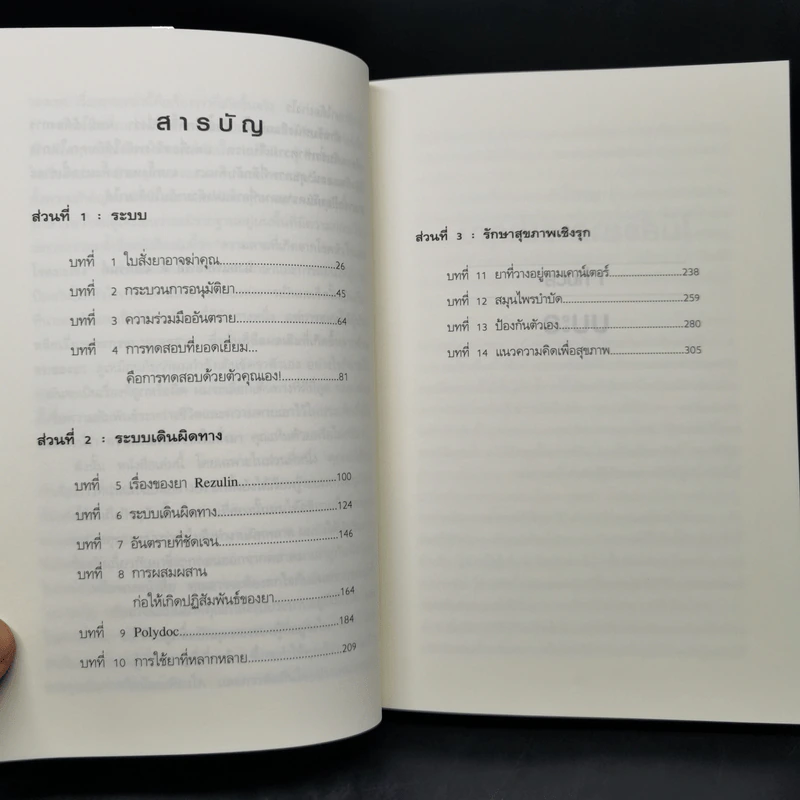 สารบัญ
ส่วนที่ 1 : ระบบ
บทที่ 1 ใบสั่งยาอาจฆ่าคุณ 26
บทที่ 2 กระบวนการอนุมัติยา 45
บทที่ 3 ความร่วมมืออันตราย 64
บทที่ 4 การทดสอบที่ยอดเยี่ยม...
คือการทดสอบด้วยตัวคุณเอง! 81
ส่วนที่ 2 : ระบบเดินผิดทาง
บทที่ 5 เรื่องของยา Rezulin 100
บทที่ 6 ระบบเดินผิดทาง 124
บทที่ 7 อันตรายที่ชัดเจน 146
บทที่ 8 การผสมผสาน
ก่อให้เกิดปฏิสัมพันธ์ของยา 164
บทที่ 9 Polydoc 184
บทที่ 10 การใช้ยาที่หลากหลาย 209
ส่วนที่ 3 : รักษาสุขภาพเชิงรุก
บทที่ 11 ยาที่วางอยู่ตามเคาน์เตอร์ 238
บทที่ 12 สมุนไพรบำบัด 259
บทที่ 13 ป้องกันตัวเอง 280
บทที่ 14 แนวความคิดเพื่อสุขภาพ 305